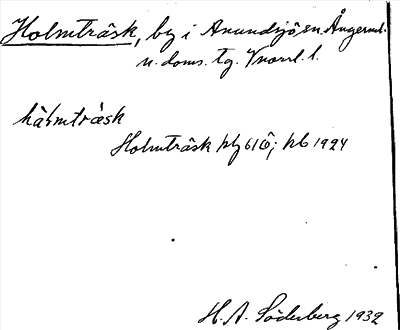 Holmträsk, by i Anundsjö sn. Ångerml.
n. doms. tg. Vnorrl. l.
hȧ̀lmtràsk
Holmträsk 1924
H. A. Söderberg 1932